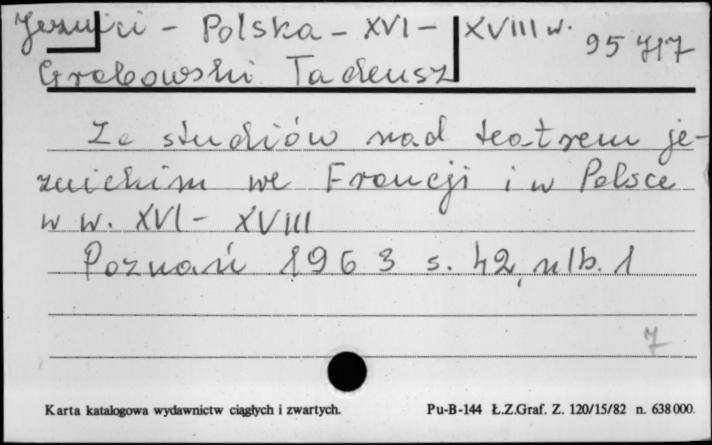 Jezuici - Polska - XVI - XVIII w.
95 717
Grabowski Tadeusz
Ze studiów nad teatrem je-
zuickim we Francji i w Polsce
w w. XVI - XVIII
Poznań 1963 s. 42, nlb. 1
7
Karta katalogowa wydawnictw ciągłych i zwartych.
Pu-B-144 Ł.Z.Graf. Z. 120/15/82 n. 638000.